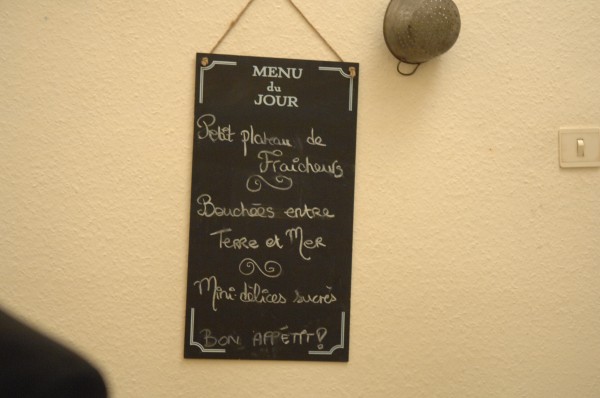 MENU
du
JOUR
Petit plateau de
Fraicheurs
Bouchées entre
Terre et Mer
Mini-délices sucrés
BON APPÉTIT!